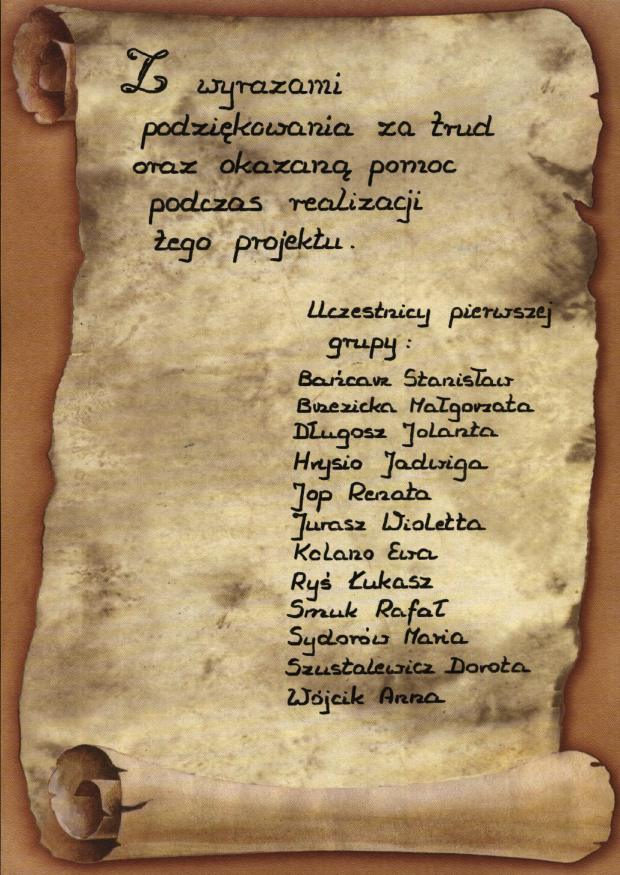 Z wyrazami
podziękowania za trud
oraz okazaną pomoc
podczas realizacji
tego projektu.
Uczestnicy pierwszej
grupy:
Bańcarz Stanisław
Brzezicka Małgorzata
Długosz Jolanta
Hrysio Jadwiga
Jop Renata
Jurasz Wioletta
Kolano Ewa
Ryś Łukasz
Smuk Rafał
Sydorów Maria
Szustalewicz Dorota
Wójcik Anna